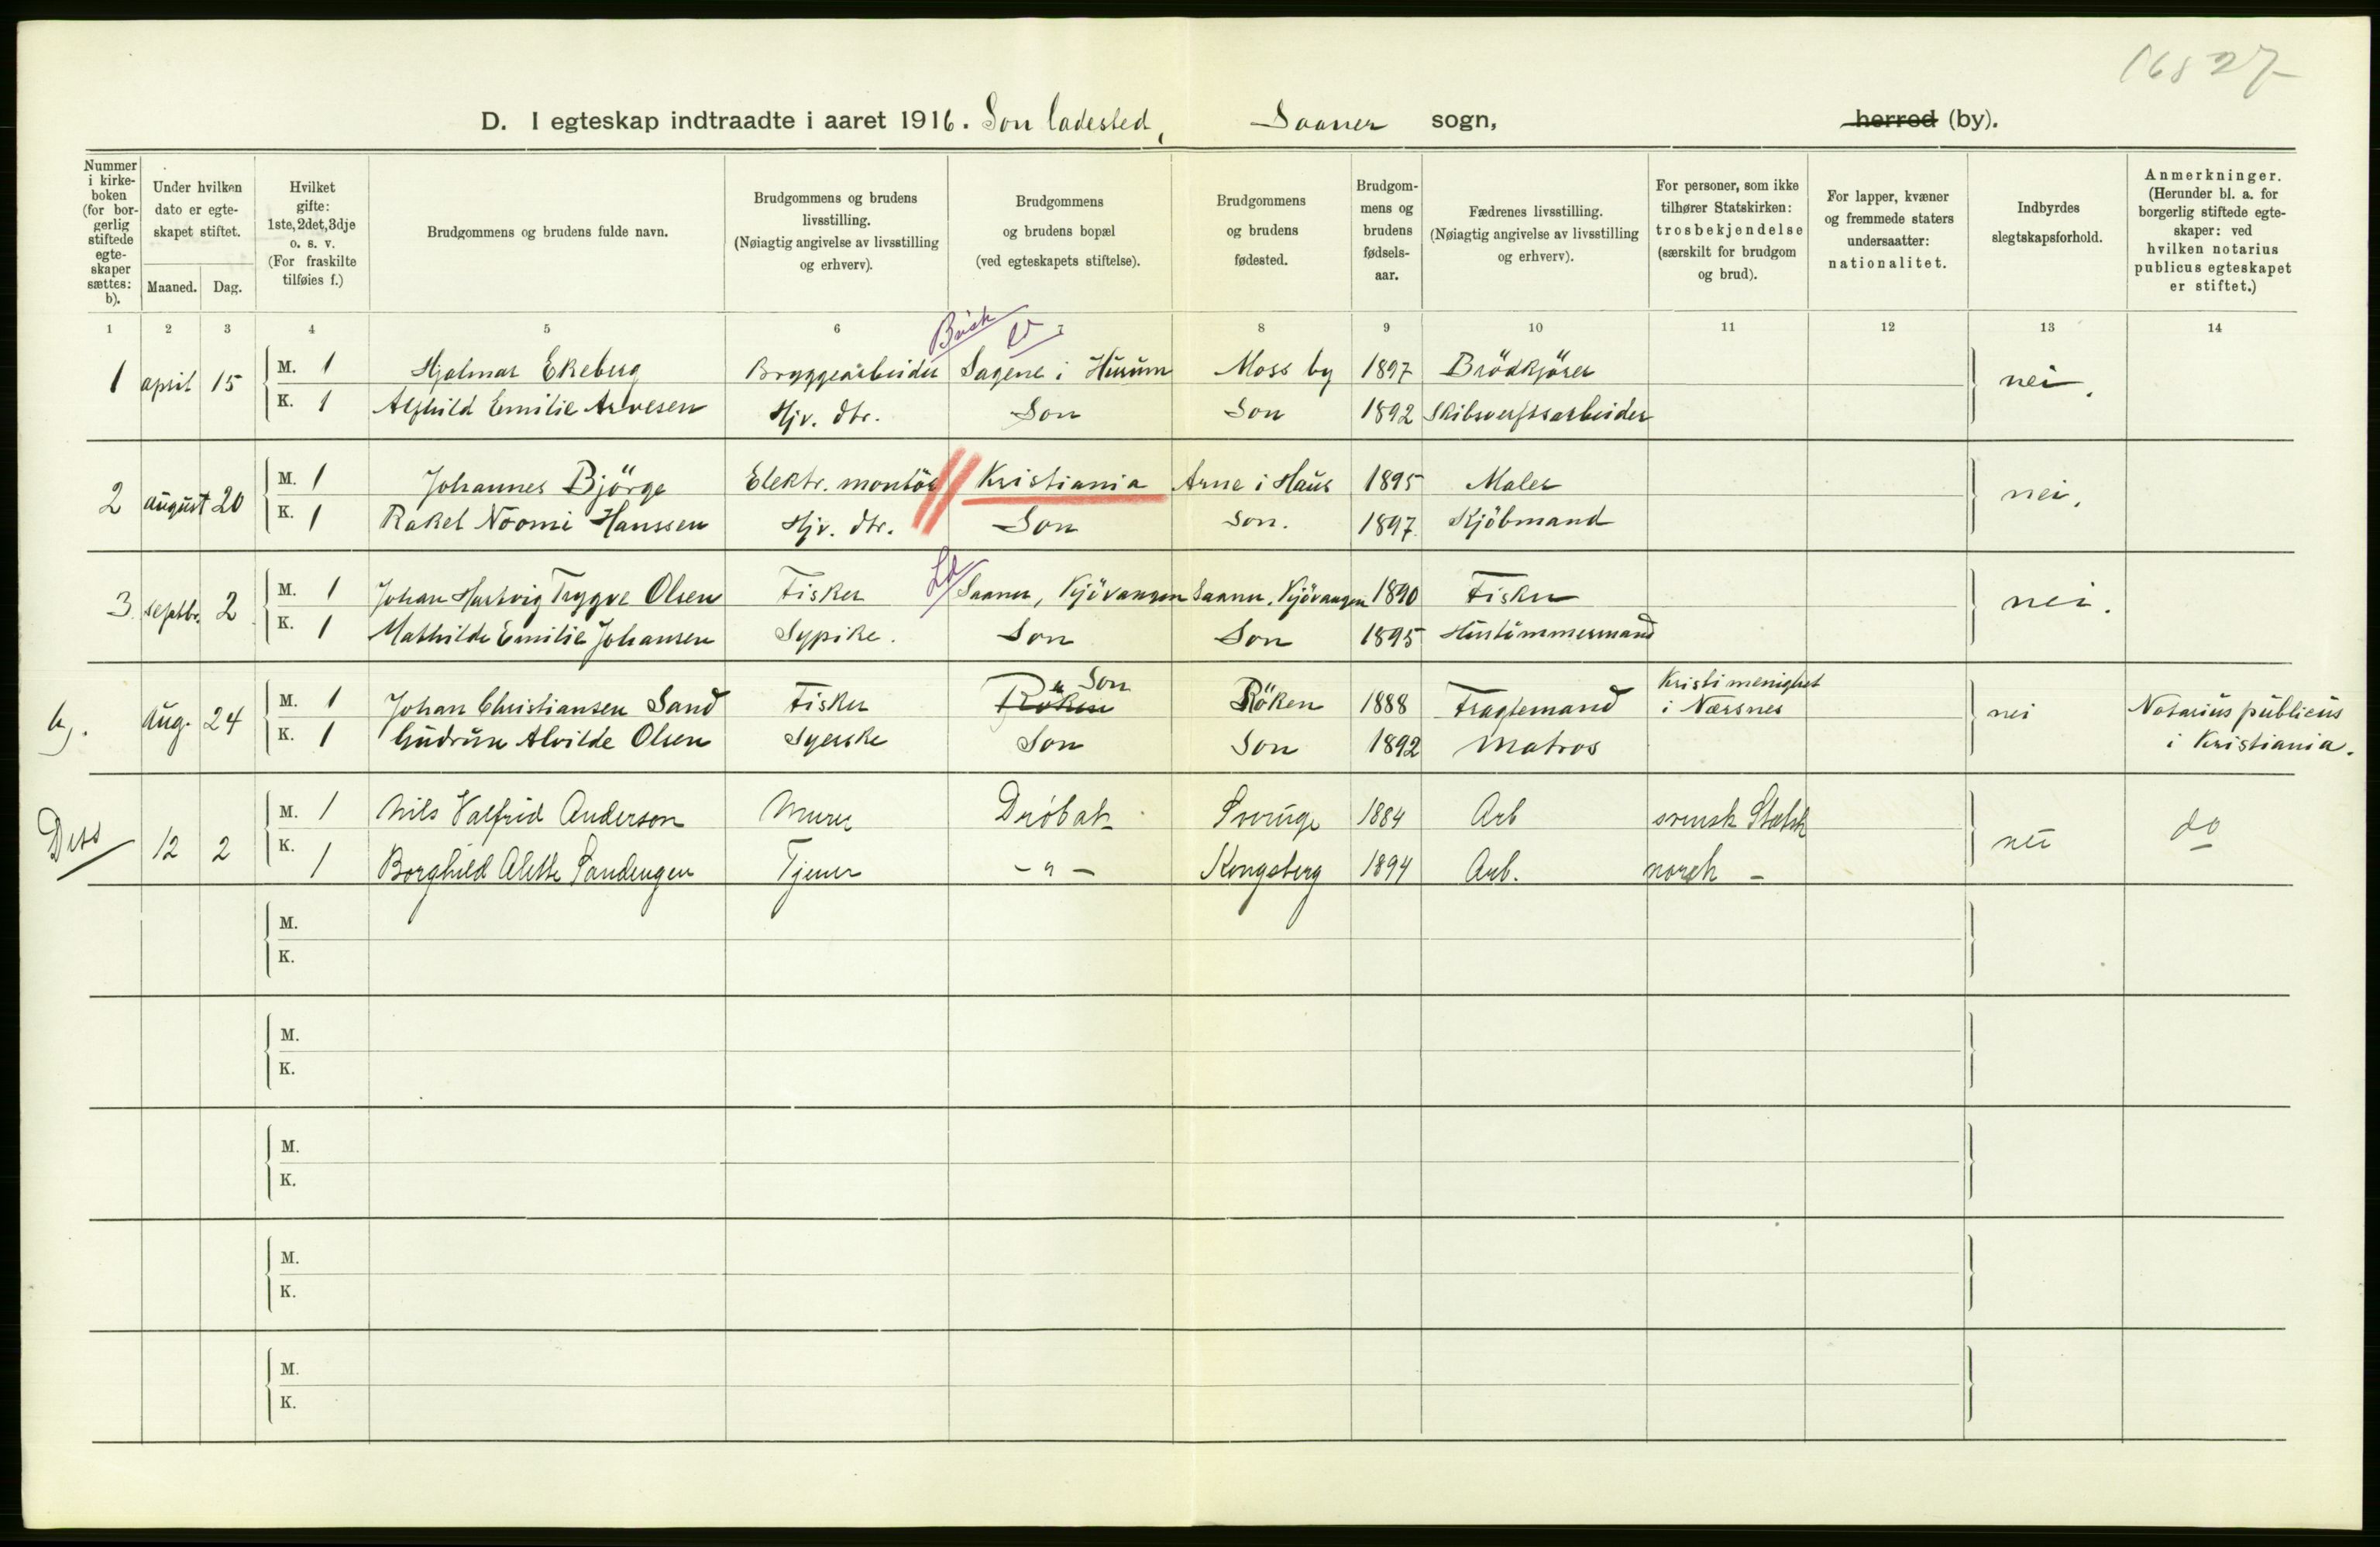 D. I egteskap indtraadte i aaret 1916. Son ladested, Saaner sogn, herred (by).
Nummer i kirkeboken (for borgerlig stiftede egteskaper sættes: b).
Under hvilken dato er egteskapet stiftet.
Maaned. Dag.
Hvilket gifte: 1ste, 2det, 3dje o. s. v. (For fraskilte tilføies f.)
Brudgommens og brudens fulde navn.
Brudgommens og brudens livsstilling. (Nøiagtig angivelse av livsstilling og erhverv).
Brudgommens og brudens bopæl (ved egteskapets stiftelse).
Brudgommens og brudens fødested.
Brudgommens og brudens fødselsaar.
Fædrenes livsstilling. (Nøiagtig angivelse av livsstilling og erhverv).
For personer, som ikke tilhører Statskirken: trosbekjendelse (særskilt for brudgom og brud).
For lapper, kvæner og fremmede staters undersaatter: nationalitet.
Indbyrdes slegtskapsforhold.
Anmerkninger. (Herunder bl. a. for borgerlig stiftede egteskaper: ved hvilken notarius publicus egteskapet er stiftet.)
1 2 3 4 5 6 7 8 9 10 11 12 13 14
1 april 15 M. 1 Hjalmar Ekeberg Bryggearbeider Sagene i Hurum Moss by 1897 Brödkjörer nei.
K. 1 Alfhild Emilie Arvesen Hjv. dtr. Son Son 1892 Skibsverftsarbeider
2 august 20 M. 1 Johannes Björge Elektr. montör Kristiania Arne i Haus 1895 Maler nei.
K. 1 Rakel Noomi Hanssen Hjv. dtr. Son Son. 1897. Kjöbmand
3 septbr. 2 M. 1 Johan Hartvig Trygve Olsen Fisker Saaner, Kjövangen Saaner, Kjövangen 1890 Fisker nei.
K. 1 Mathilde Emilie Johansen Sypike. Son Son 1895 Hustömmermand
b). aug. 24 M. 1 Johan Christiansen Sand Fisker Röken Son Röken 1888 Fragtemand Kristi menighet i Nærsnes nei Notarius publicus i Kristiania.
K. 1 Gudrun Alvilde Olsen Syerske Son Son 1892 Matros
12 2 M. 1 Nils Valfrid Anderson Murer Dröbak Sverige 1884 Arb svensk Statsk nei do
K. 1 Borghild Alette Sandengen Tjener - " - Kongsberg 1894 Arb. norsk -
M.
K.
M.
K.
M.
K.
M.
K.
M.
K.